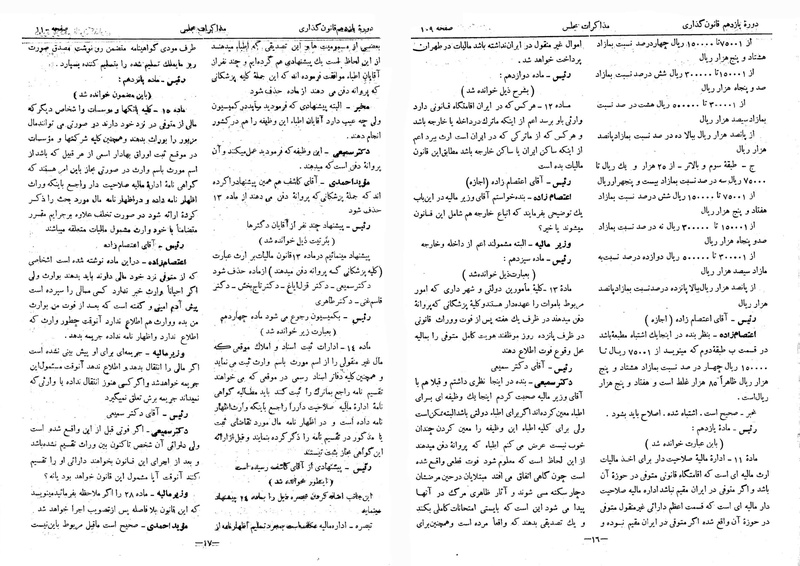 دوره یازدهم قانون گذاری
مذاکرات مجلس
صفحه ۱۰۹
از ۷۵۰۰۱ تا ۱۵۰۰۰۰ ریال چهاردرصد نسبت بمازاد
هشتاد و پنج هزار ریال
از ۱۵۰۰۰۱ تا ۳۰۰۰۰۰ ریال شش درصد نسبت بمازاد
صد و پنجاه هزار ریال
از ۳۰۰۰۰۱ تا ۵۰۰۰۰۰ ریال هشت در صد نسبت
بمازاد سیصد هزار ریال
از پانصد هزار ریال ببالا ده در صد نسبت بمازاد پانصد
هزار ریال
ج - طبقه سوم و بالاتر - از ۲۵ هزار و یك ریال تا
۷۵۰۰۰ ریال سه در صد نسبت بمازاد بیست و پنجهزار ریال
از ۷۵۰۰۱ تا ۱۵۰۰۰۰ ریال شش درصد نسبت بمازاد
هفتاد و پنج هزار ریال
از ۱۵۰۰۰۱ تا ۳۰۰۰۰۰ ریال نه در صد نسبت بمازاد
صدو پنجاه هزار ریال
از ۳۰۰۰۰۱ تا ۵۰۰۰۰۰ ریال دوازده درصد نسبت به
مازاد سیصد هزار ریال
از پانصد هزار ریال ببالا پانزده درصد نسبت بمازاد پانصد
هزار ریال
رئیس - آقای اعتصام زاده (اجازه)
اعتصام‌زاده - بنظر بنده در اینجا یك اشتباه مطبعه باشد
در قسمت ب طبقه دوم که مینویسد از ۷۵۰۰۱ ریال تا
۱۵۰۰۰۰ ریال چهار در صد نسبت بمازاد هشتاد و پنج
هزار ریال ظاهراً ۸۵ هزار غلط است و هفتاد و پنج هزار
ریال است.
مخبر - صحیح است. اشتباه شده. اصلاح باید بشود.
رئیس - ماده یازدهم:
(باین عبارت خوانده شد)
ماده ۱۱ - اداره مالیه صلاحیت دار برای اخذ مالیات
ارث مالیه ای است که اقامتگاه قانونی متوفی در حوزه آن
باشد و اگر متوفی در ایران مقیم نباشد اداره مالیه صلاحیت
دار مالیه ای است که قسمت اعظم دارائی غیرمنقول متوفی
در حوزه آن واقع شده اگر متوفی در ایران مقیم نبوده و
اموال غیر منقول در ایران نداشته باشد مالیات در طهران
پرداخت خواهد شد.
رئیس - ماده دوازدهم:
(بشرح ذیل خوانده شد)
ماده ۱۲ - هرکس که در ایران اقامتگاه قانونی دارد
وارثی باو برسد اعم از اینکه ماترك در داخله یا خارجه باشد
و هرکس که از ماترکی که در ایران است ارث ببرد اعم
از اینکه ساکن ایران یا ساکن خارجه باشد مطابق این قانون
مالیات بده است
رئیس - آقای اعتصام زاده (اجازه)
اعتصام زاده - بنده خواستم آقای وزیر مالیه در این باب
یك توضیحی بفرمایند که اتباع خارجه هم شامل این قانون
میشوند یا خیر؟
وزیر مالیه - البته مشمولند اعم از داخله وخارجه
رئیس - ماده سیزدهم:
(بعبارت ذیل خوانده شد)
ماده ۱۳ - کلیه مأمورین دولتی و شهر داری که امور
مربوط باموات را عهده دار هستند و کلیه پزشکانی که پروانه
دفن میدهند در ظرف یك هفته پس از فوت ووراث قانونی
در ظرف پانزده روز موظفند هویت کامل متوفی را بمالیه
محل وقوع فوت اطلاع دهند
رئیس - آقای دکتر سمیعی
دکتر سمیعی - بنده در اینجا نظری داشتم و قبلا هم با
آقای وزیر مالیه صحبت کردم اینجا یك وظیفه ای برای
اطباء معین کرده اند اگر برای اطباء دولتی باشد البته ممکن است
ولی برای کلیه اطباء این وظیفه را معین کردن چندان
خوب نیست عرض می کنم اطباء که پروانه دفن میدهند
از این لحاظ است که معلوم شود فوت قطعی واقع شده
است چون گاهی اتفاق می افتد مبتلایان در حین مرضشان
دچار سکته می شوند و آثار ظاهری مرگ در آنها
پیدا می شود این است که بایستی امتحانات کاملی بکنند
و یك تصدیقی بدهند که واقعاً مرده است وهمچنین برای
-۱۶-
دوره یازدهم قانون گذاری
مذاکرات مجلس
بعضی از مسمومیت ها و این تصدیقی که اطباء میدهند
از این لحاظ است یك پیشنهادی هم کرده ایم و چند نفر از
آقایان اطباء موافقت فرموده اند که این جمله کلیه پزشکانی
که پروانه دفن می دهند از ماده حذف شود
مخبر - البته پیشنهادی که فرمودید میآید در کمیسیون
ولی چه عیب دارد آقایان اطباء این وظیفه را هم در کشور
انجام دهند.
دکتر سمیعی - این وظیفه که فرمودید عمل میکنند و آن
پروانه دفن است که میدهند.
مؤید احمدی - آقای کاشف هم همین پیشنهاد را کرده
اند که جمله پزشکانی که پروانه دفن می دهند از ماده ۱۳
حذف شود
رئیس - پیشنهاد چند نفر از آقایان دکترها
(بترتیب ذیل خوانده شد)
پیشنهاد مینمائیم در ماده ۱۳ قانون مالیات بر ارث عبارت
(کلیه پزشکانی که پروانه دفن میدهند) از ماده حذف شود
دکتر سمیعی - دکتر قزل ایاغ - دکتر تاج بخش - دکتر
قاسم غنی - دکتر طاهری
رئیس - بکمیسیون رجوع می شود ماده چهاردهم
(بعبارت زیر خوانده شد)
ماده ۱۴ - ادارات ثبت اسناد و املاك موقعی که
مال غیر منقولی را از اسم مورث باسم وارث ثبت می نمایند
و همچنین کلیه دفاتر اسناد رسمی در موقعی که می خواهند
تقسیم نامه راجع بماترك را ثبت کنند باید مطالبه گواهی
نامه اداره مالیه صلاحیت دار را راجع باینکه وارث اظهار
نامه داده است و در اظهار نامه مال مورد تقاضای ثبت
یا مذکور در تقسیم نامه را ذکر کرده بنمایند و قبل از ارائه
این گواهی مجاز بثبت نیستند
رئیس - پیشنهادی از آقای کاشف رسیده است
(اینطور خوانده شد)
این جانب اضافه کردن تبصره ذیل را بماده ۱۴ پیشنهاد
مینماید
تبصره - اداره مالیه مکلف است بمجرد تسلیم اظهارنامه از
طرف مودی گواهینامه متضمن رونوشت مصدق صورت
ریز مایملك تسلیم شده را بتسلیم کننده بسپارد.
رئیس - ماده پانزدهم:
(باین مضمون خوانده شد)
ماده ۱۵ - کلیه بانکها و موسسات و اشخاص دیگر که
مالی از متوفی در نزد خود دارند در صورتی می توانند مال
مزبور را بوراث بدهند وهمچنین کلیه شرکتها و مؤسسات
در موقع ثبت اوراق بهادار اسمی از هر قبیل که باشد از
اسم مورث باسم وارث در صورتی مجاز باین امر هستند که
گواهی نامه اداره مالیه صلاحیت دار راجع باینکه وراث
اظهار نامه داده و در اظهار نامه مال مورد بحث را ذکر
کرده ارائه شود در صورت تخلف علاوه برجرایم مقرر
متضامناً با خود وارث مشمول مالیات متعلقه میباشند
رئیس - آقای اعتصام زاده
اعتصام زاده - در این ماده نوشته شده است اشخاصی
که از متوفی نزد خود مالی دارند باید بدهند بوارث ولی
اگر احیاناً وارث خبر ندارد کسی مالی را سپرده است
پیش آدم امینی و گفته است که بعد از فوت من بوارث
من بده ووارث هم اطلاع ندارد آنوقت چطور وارث که
اطلاع ندارد واظهار نامه نداده جریمه بدهد.
وزیر مالیه - جریمه ای برای او پیش بینی نشده است
اگر مالی را انتقال بدهد و اطلاع ندهد آنوقت مسئول این
جریمه خواهند شد و اگر کسی هنوز انتقال نداده یا وارثی که
نمیداند جریمه برش تعلق نمیگیرد
رئیس - آقای دکتر سمیعی
دکتر سمیعی - اگر فوتی قبل از این واقع شده است
ولی دارائی آن شخص تاکنون بین وراث تقسیم نشده باشد
و بعد از اجرای این قانون بخواهند دارائی او را تقسیم
کنند آنوقت آیا مشمول این قانون خواهد بود یا نه؟
وزیر مالیه - ماده ۳۸ را اگر ملاحظه بفرمائید مینویسد
که این قانون بلا فاصله پس از تصویب اجرا خواهد شد
مؤید احمدی - صحیح است ماقبل مربوط باین نیست
-۱۷-